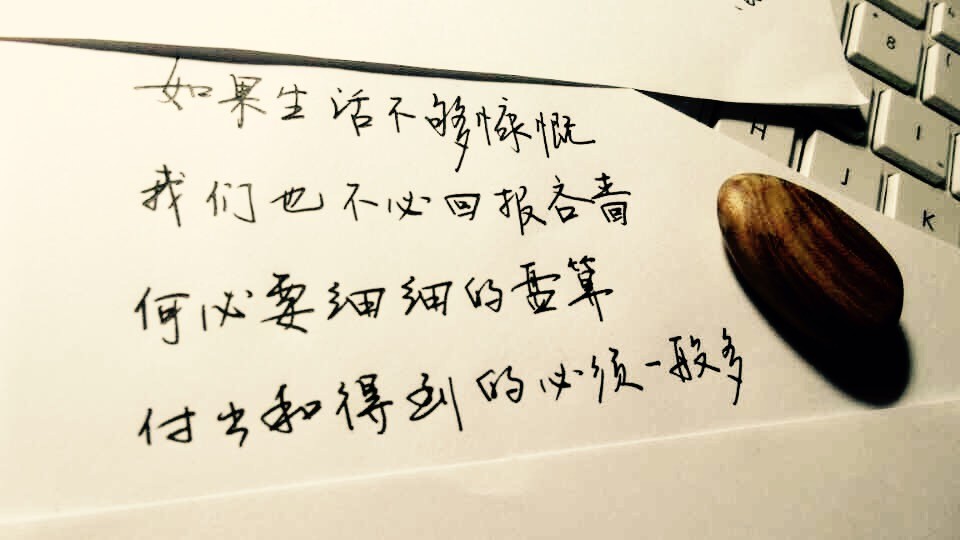 如果生活不够慷慨
我们也不必回报吝啬
何必要细细的盘算
付出和得到的必须一般多
8
I
H
J
K